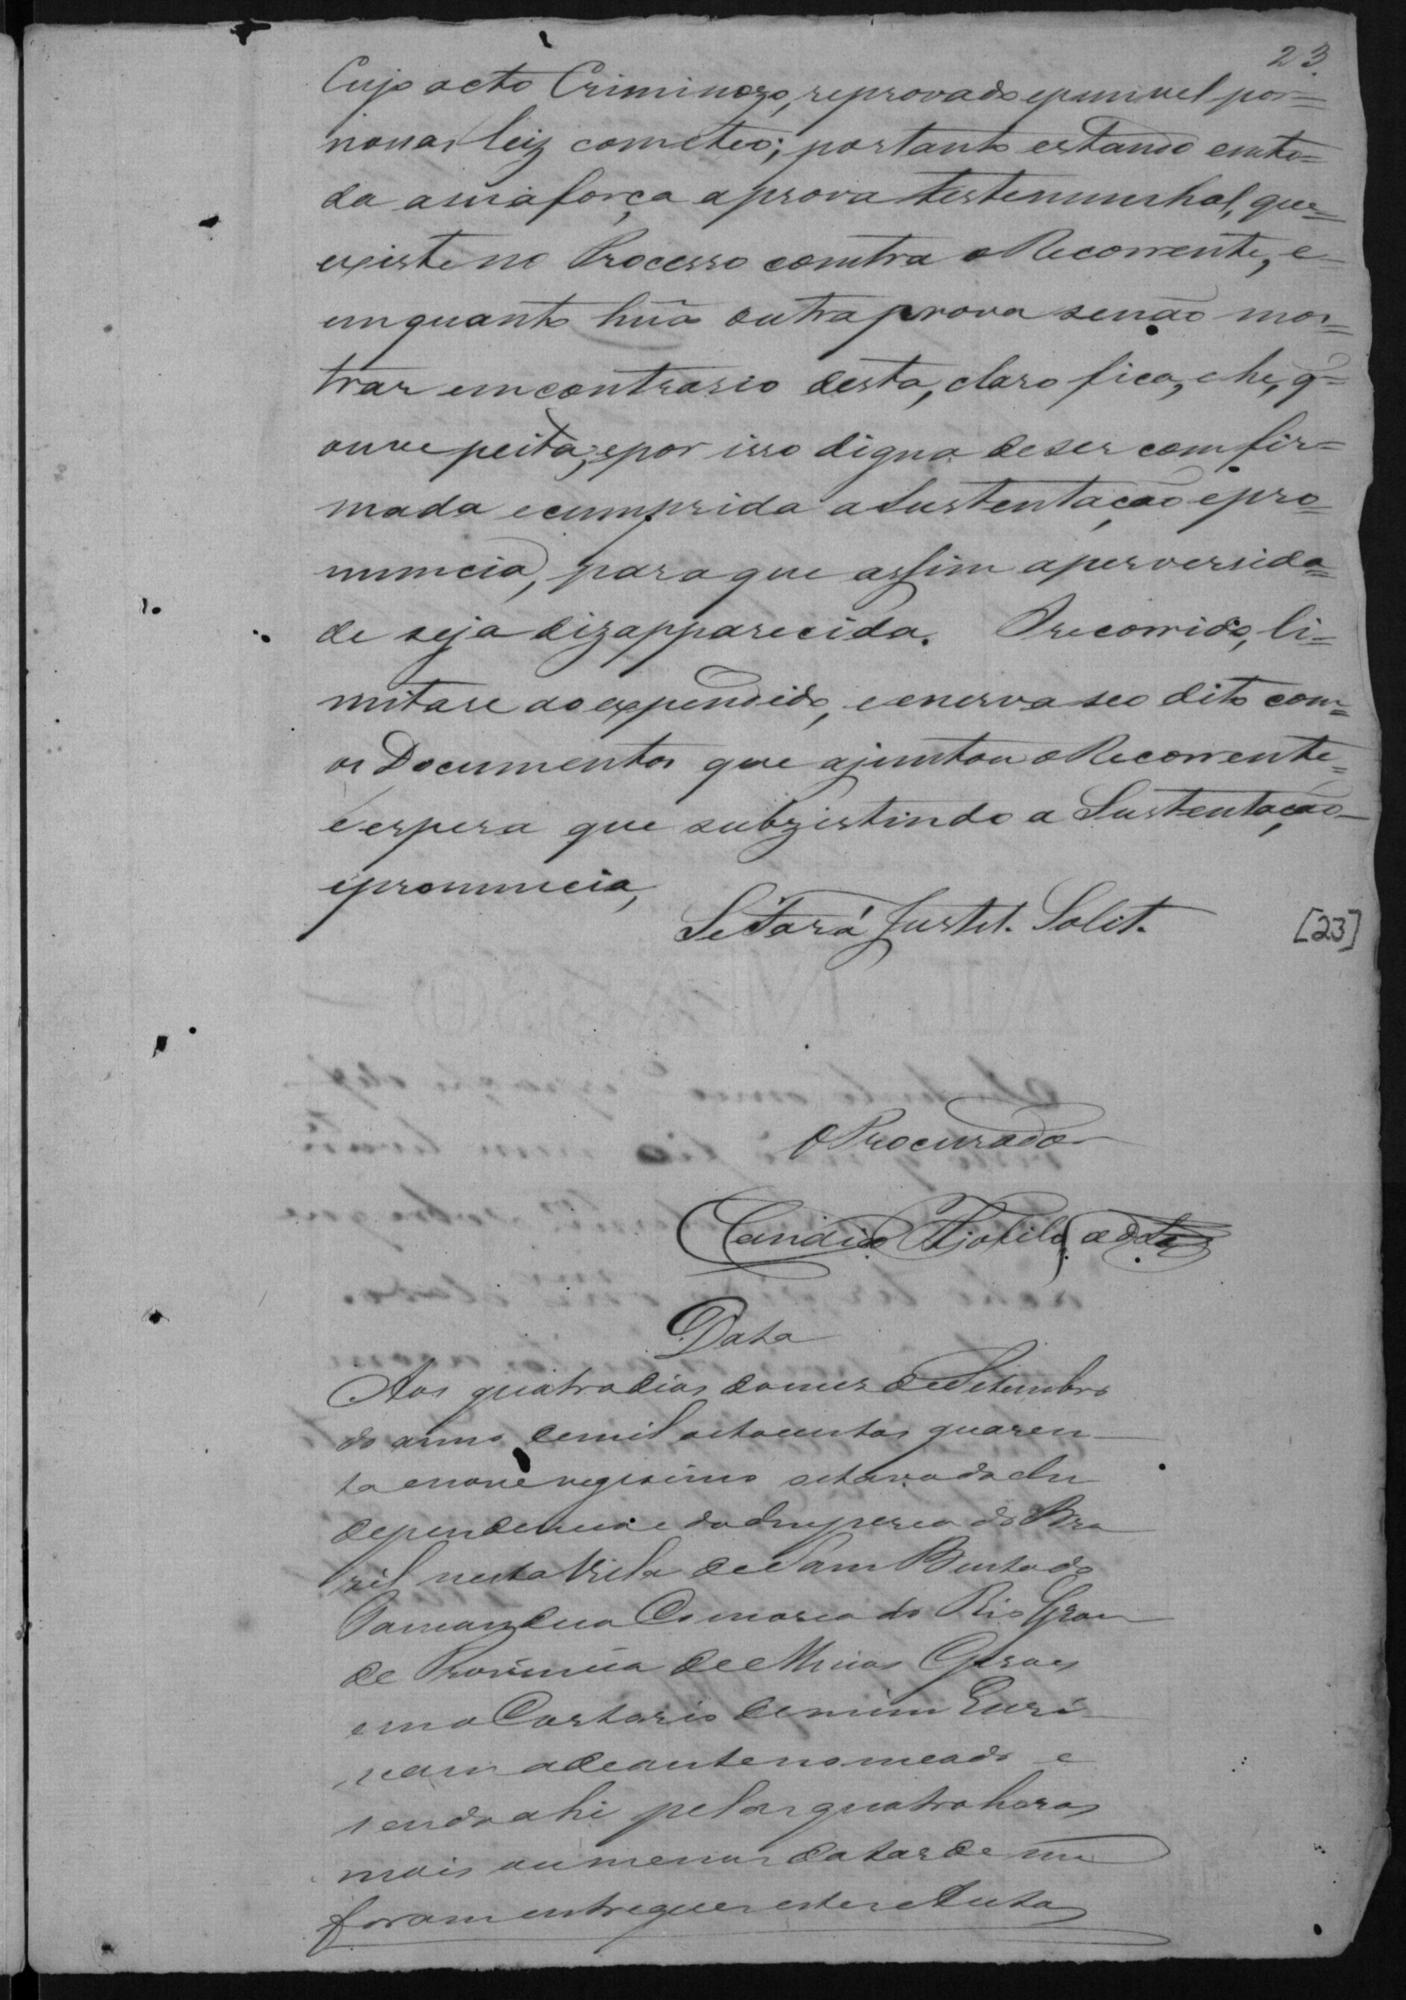 23
Cujo acto Criminozo, reprovado epunivel por=
nonas leiz cometeo; portanto estando emto=
da asuaforça aprova testemunhal, que=
existe no Processo comtra o Recorrente, e
emquanto hũa outra prova senão mos=
trar emcontrario desta, claro fica, ehe, q=
ouve peita, epor isso digna deser comfir=
mada ecumprida a Sustentação epro=
nuncia, paraque assim aperversida=
de seja dizapparecida. O recorrido, li=
mitase ao expendido, e enerva seo dito com=
os Documentos que ajuntou o Recorrente=
e espera que subzistindo a Sustentação
epronuncia,
Se Fará Justa. Solit.
[23]
O Procurador
Candido
Data
Aos quatro dias domes de Setembro
do anno demil oitocentos quaren
ta enove vigesimo oitavo da In
dependencia e do Imperio do Bra
zil nesta Villa de Sam Bento do
Tamandua Comarca do Rio Gran
de Provincia de Minas Geraes
emo Cartorio demim Escri
vam adeante nomeado e
sendo ahi pelas quatro horas
mais oumenos datarde me
foram entregues estes Autos